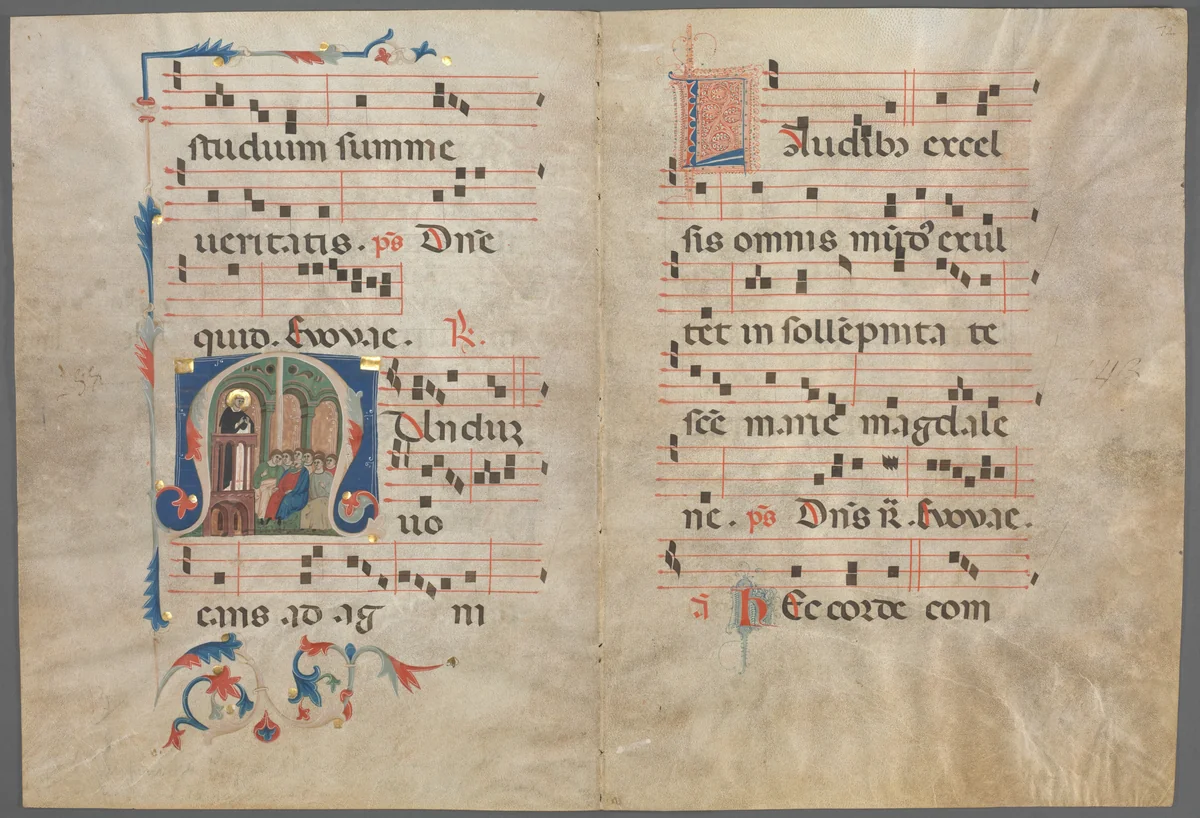 studium summe
ueritatis. p̄s Dn̄e
quid. Evovae. R.
Mundum
uo
cans ad ag ni
Laudibꝯ excel
sis omnis mūdꝯ exul
tet in sollēpnita te
scē marie magdale
ne. p̄s Dn̄s r̄. Evovae.
ā hEc corde com